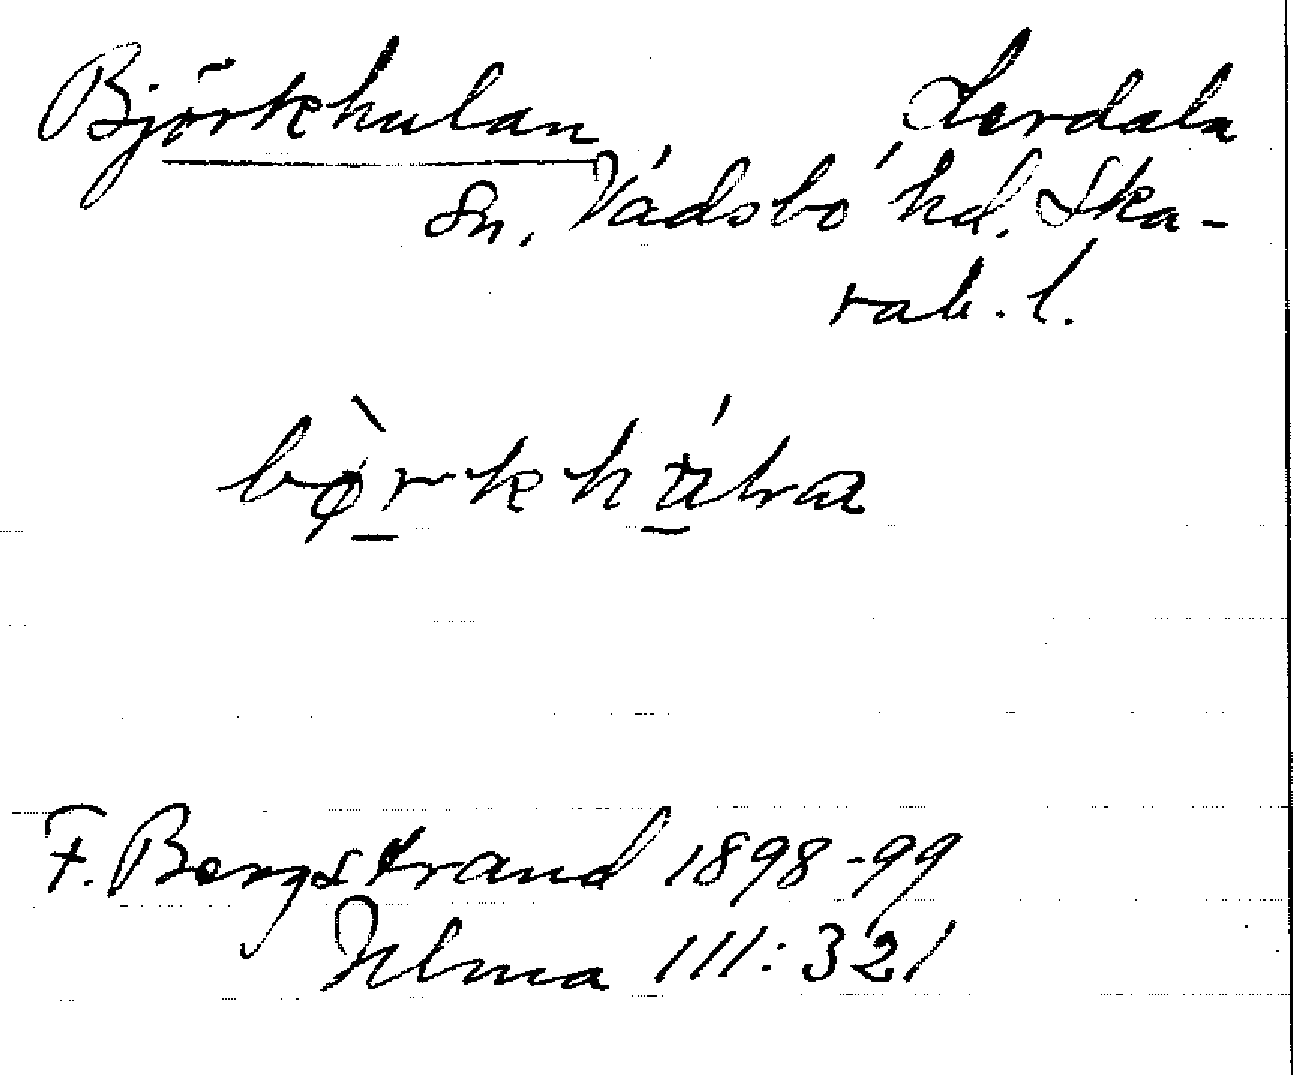 Björkhulan Lerdala
Sn. Vadsbo hd. Ska-
rab. l.
F. Bergstrand 1898-99
Ulma 111:321